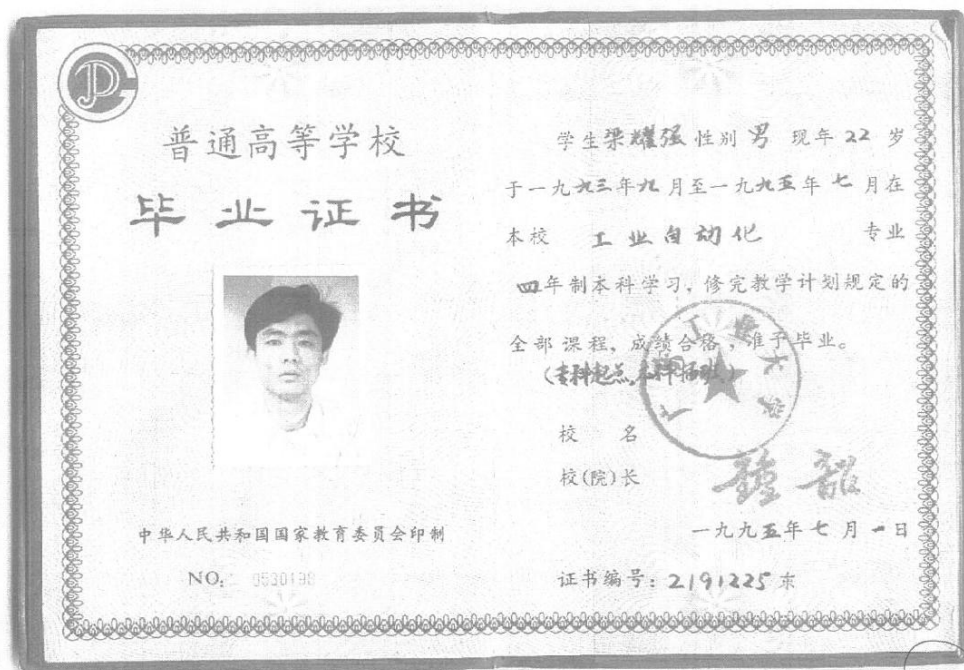 普通高等学校
毕业证书
中华人民共和国国家教育委员会印制
NO: 0530198
学生梁耀强性别男 现年22岁
于一九九三年九月至一九九五年七月在
本校 工业自动化 专业
四年制本科学习，修完教学计划规定的
全部课程，成绩合格，准予毕业。
(专科起点,本科插班)
校 名
广东工业大学
校(院)长
一九九五年七月一日
证书编号：2191225东